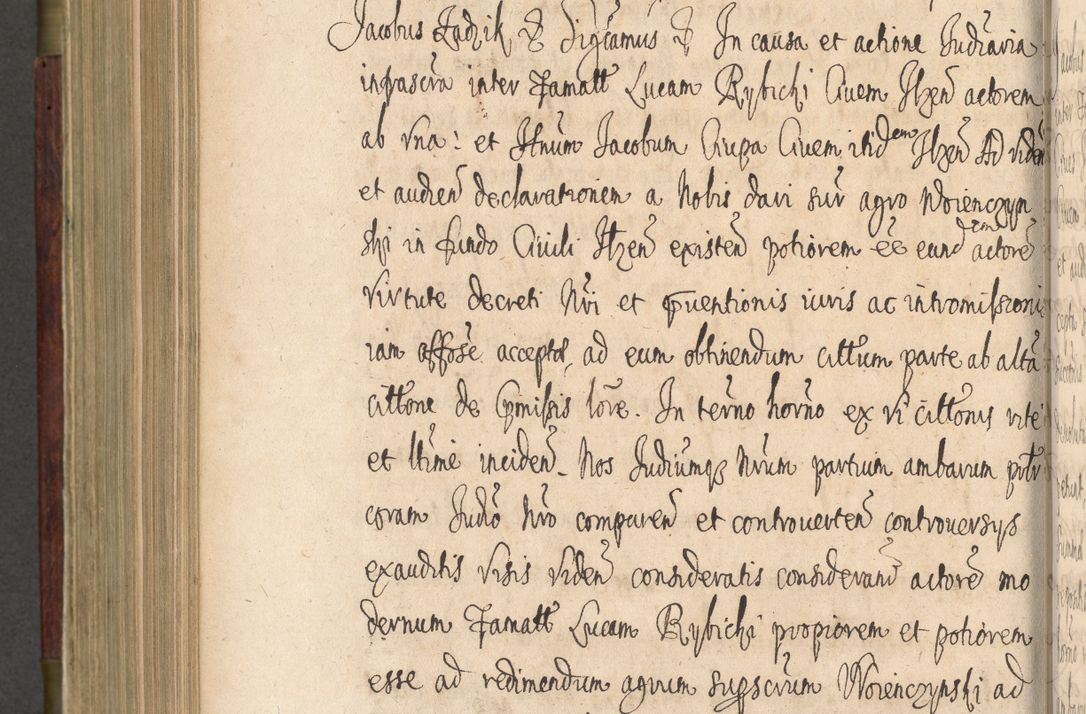 Jacobus Zadzik & Sigcamus & In causa et actione Iudiaria
infrascra inter Famatt Lucam Rybicki Ciuem Ilzen actorem
ab vna: et Honum Jacobum Ciupa Ciuem itidem Ilzen Ad viden
et audien declarationem a Nobis dari sur agro Worenczyn
ski in fundo Ciuili Ilzen existen potiorem ee eundem actore
virtute decreti Nri et quentionis iuris ac intromissionis
iam offose accepto, ad eum obtinendum cittum parte ab alta
cittone de Cpmissis lore. In terno horno ex vi cittonis rite
et ltime inciden. Nos Iudiumq3 Nrum partium ambarum pntr
coram Iudio Nro comparen et controuerten controuersys
exauditis visis viden consideratis considerand actore mo
dernum Famatt Lucam Rybicki propiorem et potiorem
esse ad redimendum agrum supscrum Worenczynski ad